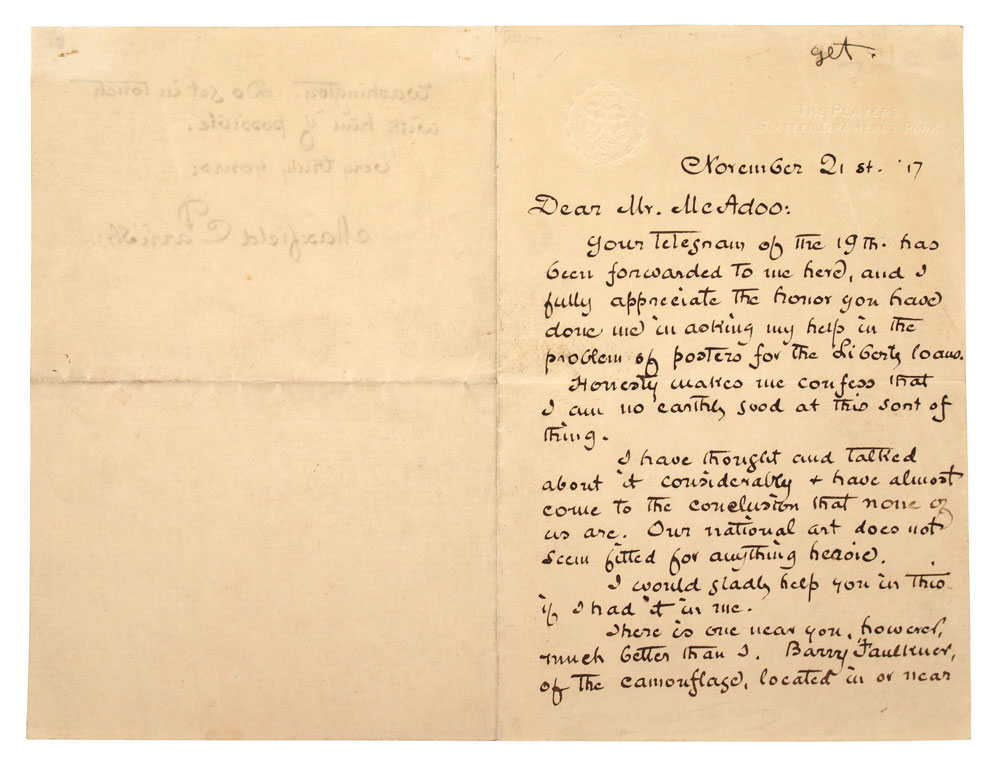 get.
THE PLAYERS
SIXTEEN GRAMERCY PARK
November 21st. '17
Dear Mr. McAdoo:
Your telegram of the 19th. has
been forwarded to me here, and I
fully appreciate the honor you have
done me in asking my help in the
problem of posters for the Liberty loans.
Honesty makes me confess that
I am no earthly good at this sort of
thing.
I have thought and talked
about it considerably + have almost
come to the conclusion that none of
us are. Our national art does not
seem fitted for anything heroic.
I would gladly help you in this
if I had it in me.
There is one near you, however,
much better than I. Barry Faulkner,
of the camouflage, located in or near
Washington. Do get in touch
with him if possible.
Very truly yours:
Maxfield Parrish.